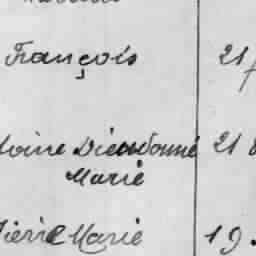 François 21
toine Dieudonné 21 8
Marie
Pierre Marie 19